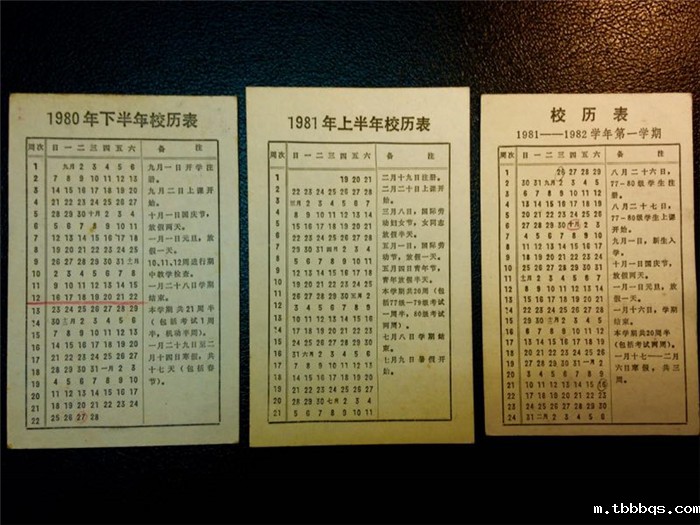 1980年下半年校历表
周次 日 一 二 三 四 五 六 备 注
1 九月 2 3 4 5 6
2 7 8 9 10 11 12 13
3 14 15 16 17 18 19 20
4 21 22 23 24 25 26 27
5 28 29 30 十月 2 3 4
6 5 6 7 8 9 10 11
7 12 13 14 15 16 17 18
8 19 20 21 22 23 24 25
9 26 27 28 29 30 31
10 2 3 4 5 6 7 8
11 9 10 11 12 13 14 15
12 16 17 18 19 20 21 22
13 23 24 25 26 27 28 29
14 30 2 3 4 5 6
15 7 8 9 10 11 12 13
16 14 15 16 17 18 19 20
17 21 22 23 24 25 26 27
18 28 29 30 31 一月 2 3
19 4 5 6 7 8 9 10
20 11 12 13 14 15 16 17
21 18 19 20 21 22 23 24
22 25 26 27 28
九月一日开学注
册。
九月二日上课开
始。
十月一日国庆节，
放假两天。
一月一日元旦，放假
一天。
10、11、12周进行期
中教学检查。
一月二十八日学期
结束。
本学期共21周半
（包括考试1周
半，机动半周）。
一月二十九日至二
月十四日寒假，共
十七天（包括春
节）。
1981年上半年校历表
周次 日 一 二 三 四 五 六 备 注
1 19 20 21
2 22 23 24 25 26 27 28
3 三月 2 3 4 5 6 7
4 8 9 10 11 12 13 14
5 15 16 17 18 19 20 21
6 22 23 24 25 26 27 28
7 29 30 31 四月 2 3 4
8 5 6 7 8 9 10 11
9 12 13 14 15 16 17 18
10 19 20 21 22 23 24 25
11 26 27 28 29 30 五月 2
12 3 4 5 6 7 8 9
13 10 11 12 13 14 15 16
14 17 18 19 20 21 22 23
15 24 25 26 27 28 29 30
16 31 六月 2 3 4 5 6
17 7 8 9 10 11 12 13
18 14 15 16 17 18 19 20
19 21 22 23 24 25 26 27
20 28 29 30 七月 2 3 4
21 5 6 7 8 9 10 11
二月十九日注册。
二月二十日上课开
始。
三月八日，国际劳
动妇女节，女同志
放假半天。
五月一日，国际劳
动节，放假一天。
五月四日青年节，
青年放假半天。
本学期共20周（包
括77级—79级考试
一周半，80级考试
两周）。
七月八日学期结
束。
七月九日暑假开
始。
校 历 表
1981——1982学年第一学期
周次 日 一 二 三 四 五 六 备 注
1 26 27 28 29
2 30 31 九月 2 3 4 5
3 6 7 8 9 10 11 12
4 13 14 15 16 17 18 19
5 20 21 22 23 24 25 26
6 27 28 29 30 十月 2 3
7 4 5 6 7 8 9 10
8 11 12 13 14 15 16 17
9 18 19 20 21 22 23 24
10 25 26 27 28 29 30 31
11 2 3 4 5 6 7
12 8 9 10 11 12 13 14
13 15 16 17 18 19 20 21
14 22 23 24 25 26 27 28
15 29 30 2 3 4 5
16 6 7 8 9 10 11 12
17 13 14 15 16 17 18 19
18 20 21 22 23 24 25 26
19 27 28 29 30 31 一月 2
20 3 4 5 6 7 8 9
21 10 11 12 13 14 15 16
22 17 18 19 20 21 22 23
23 24 25 26 27 28 29 30
24 31 二月 2 3 4 5 6
八月二十六日，
77—80级学生注
册。
八月二十七日，
77—80级学生上课
开始。
九月一日，新生入
学。
十月一日国庆节，
放假两天。
一月一日元旦，放
假一天。
一月十六日，学期
结束。
本学期共20周半
（包括考试两周）。
一月十七—二月
六日寒假，共三
周。
m.tbbbqs.com